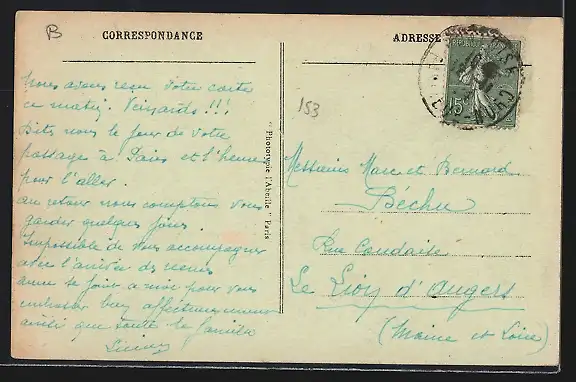 B
CORRESPONDANCE
ADRESSE
Nous avons reçu votre carte
ce matin. Veinards !!!
Dites nous le jour de votre
passage à Paris et l'heure
pour l'aller.
au retour nous comptons vous
garder quelques jours.
Impossible de vous accompagner
avec l'arrivée des
se joint à moi pour vous
embrasser bien affectueusement
ainsi que toute la famille
"Phototypie l'Abeille" Paris
153
15
Messieurs Marc et Bernard
Béchu
Rue
Le Lion d'Angers
(Maine et Loire)